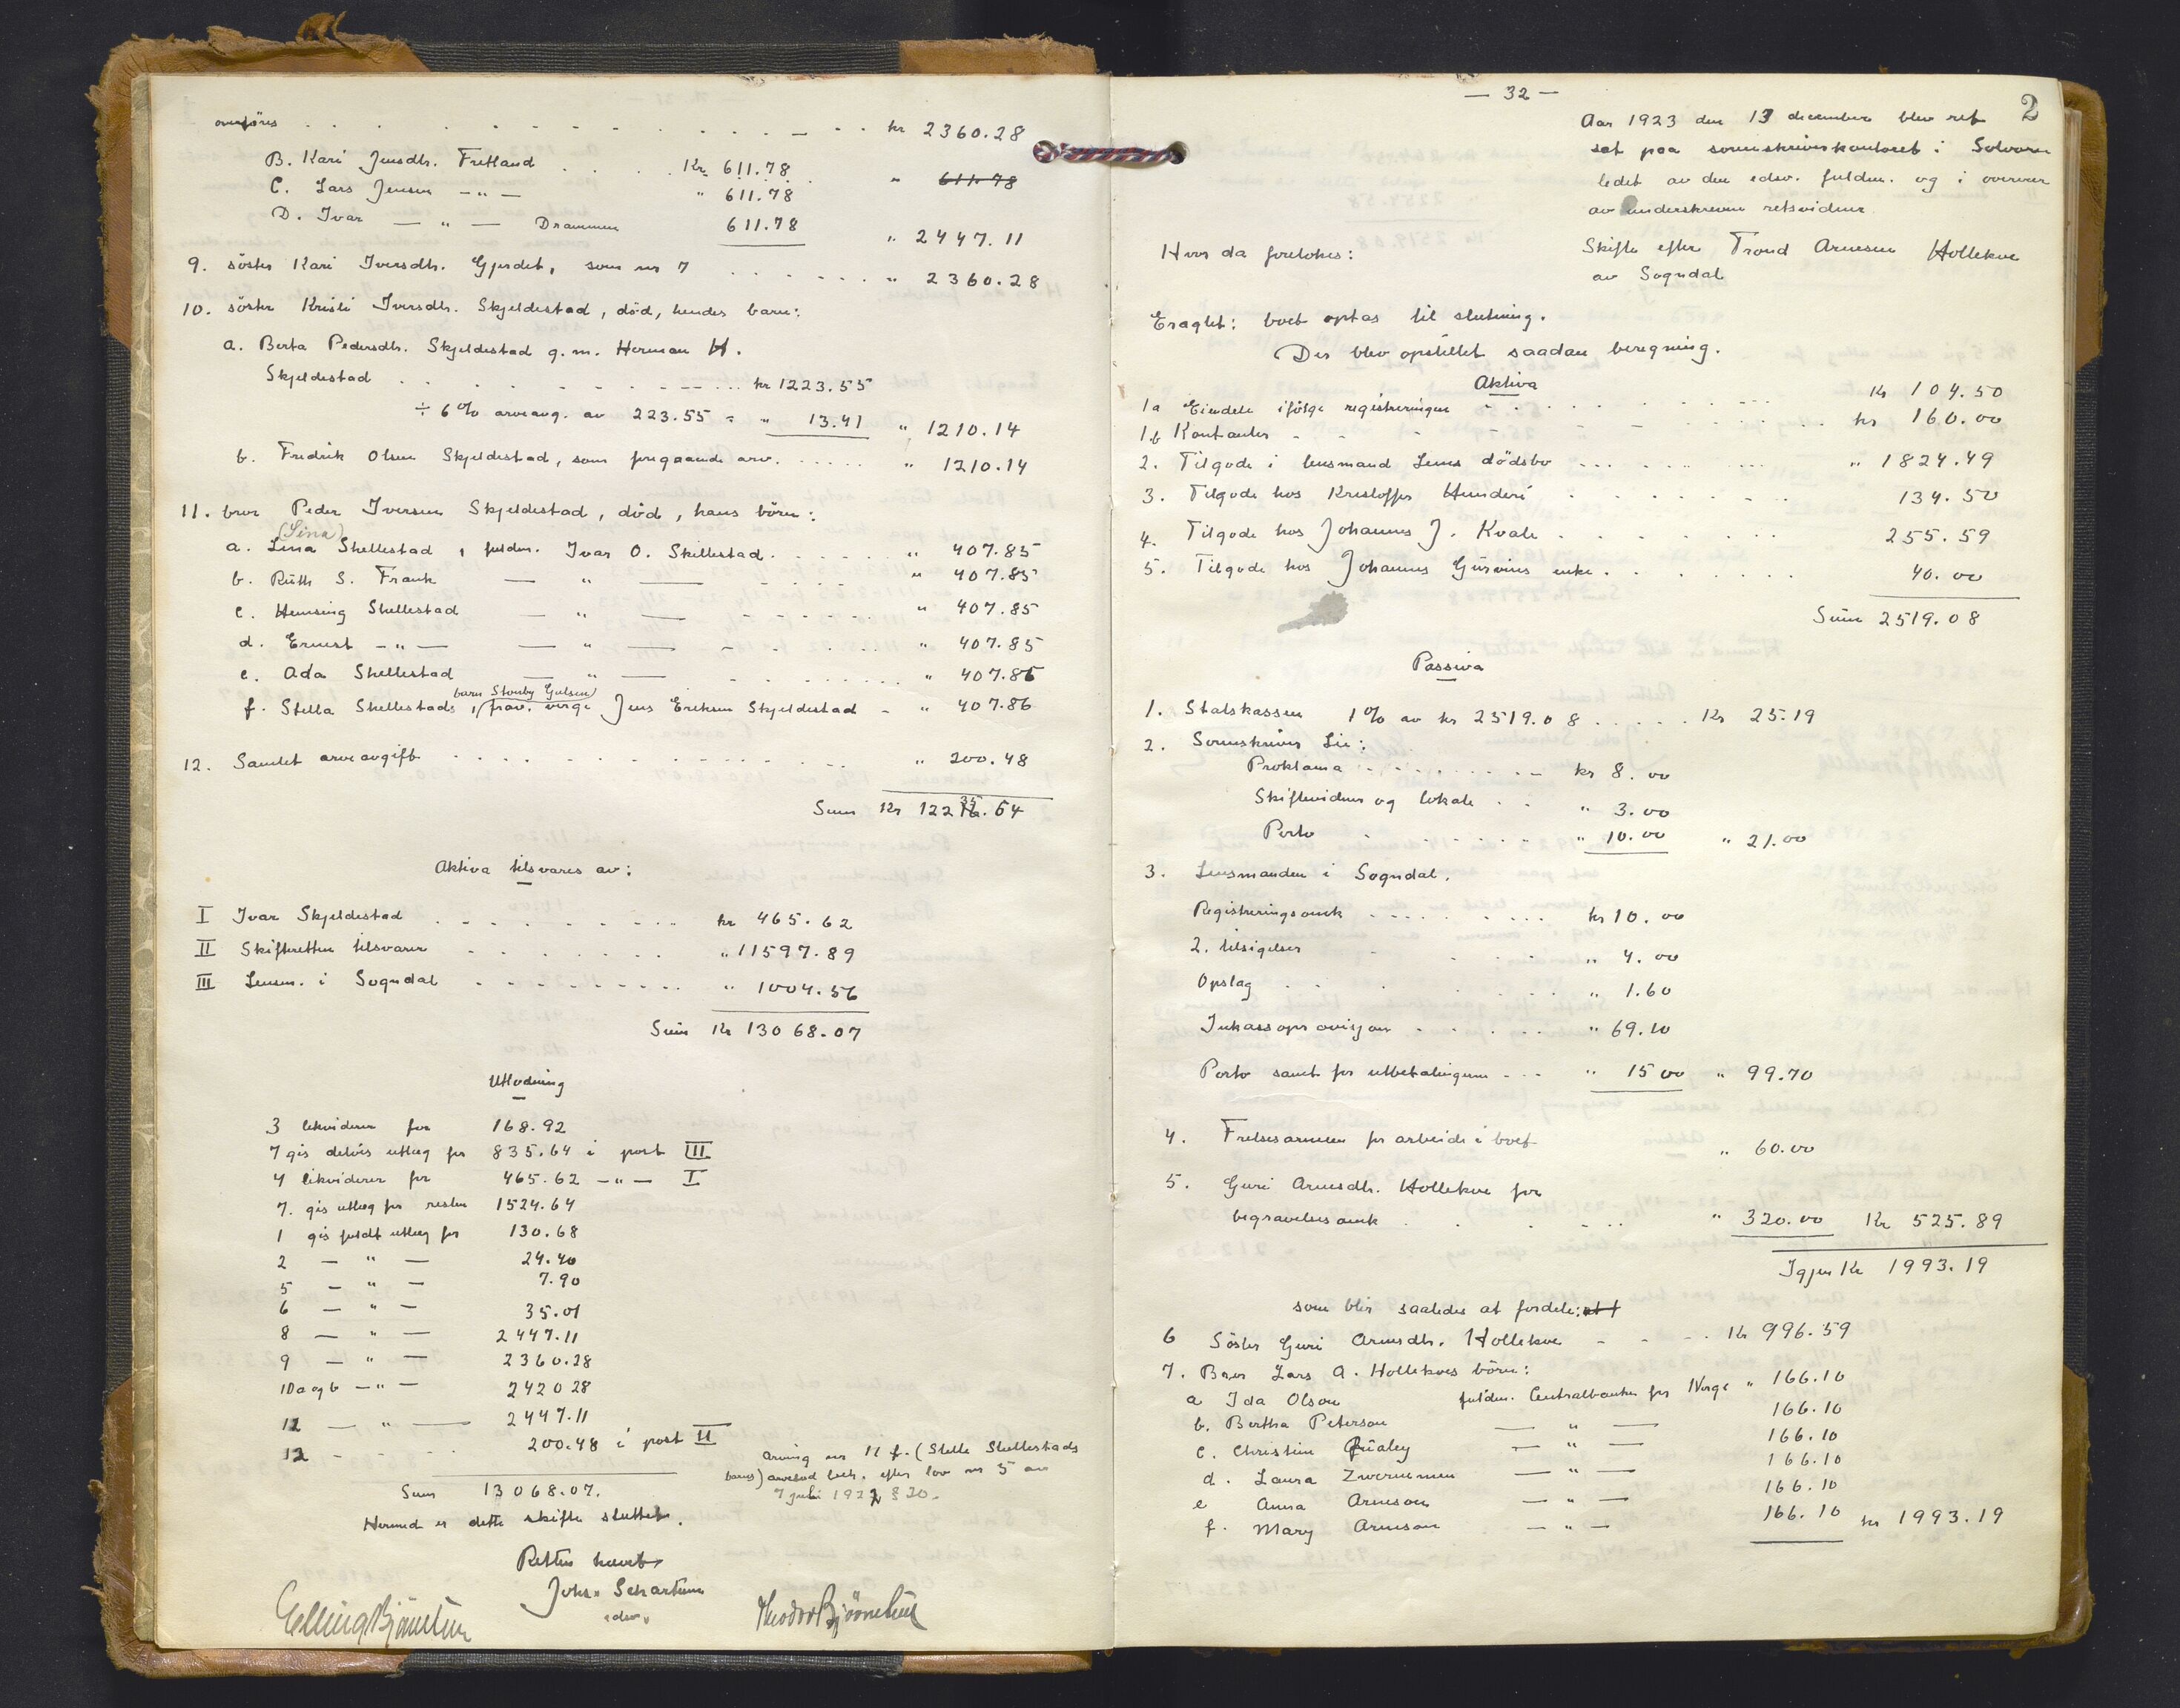 overføres . . . . . . . . . . . . . kr 2360.28
B. Kari Jensdtr. Fretland . . . . Kr. 611.78
C. Lars Jensen — " — " 611.78 " 611.78
D. Ivar — " — Drammen 611.78 " 2447.11
9. søster Kari Iversdtr. Gjerdet, som nr 7 . . . . . . " 2360.28
10. søster Kristi Iversdtr. Skjeldestad, død, hendes barn:
a. Berta Pedersdtr. Skjeldestad g.m. Herman H.
Skjeldestad . . . . . . . . . . kr 1223.55
÷ 6 % arveavg. av 223.55 = " 13.41 " 1210.14
b. Fredrik Olsen Skjeldestad, som foregaaende arv. . . . . . " 1210.14
11. bror Peder Iversen Skjeldestad, død, hans børn:
(Sina)
a. Lina Shellestad, fuldm. Ivar O. Skillestad . . . . . " 407.85
b. Ruth S. Frank — " — . . . . " 407.85
c. Hensing Shellestad — " — . . . . . " 407.85
d. Ernest — " — — " — . . . . " 407.85
e. Ada Shellestad — " — . . . . . . " 407.86
f. Stella Shellestads barn Stouby Gulsen, frav. verge Jens Eriksen Skjeldestad - " 407.86
12. Samlet arveavgift . . . . . . . . . . . . " 200.48
Sum Kr 12235.54
Aktiva tilsvares av:
I Ivar Skjeldestad . . . . . . . . . kr 465.62
II Skifteretten tilsvarer . . . . . . . " 11597.89
III Lensm. i Sogndal . . . . . . . . . " 1004.56
Sum Kr 13068.07
Utlodning
3 likviderer for 168.92
7 gis delvis utlæg for 835.64 i post III
4 likviderer for 465.62 — " — I
7. gis utlæg for resten 1524.64
1 gis fuldt utlæg for 130.68
2 — " — 24.40
5 — " — 7.90
6 — " — 35.01
8 — " — 2447.11
9 — " — 2360.28
10 a og b — " — 2420 28
11 — " — 2447.11
12 - - - - 200.48 i post II
Arving nr 11 f. (Stella Shellestads
barns) arvelod beh. efter lov nr 5 av
7 juli 1922 § 20.
Sum 13068.07.
Hermed er dette skifte sluttet.
Retten hævet
Johs. Schartum
edsv.
Elling Bjørnetun
Theodor Bjørnetun
— 32 —
2
Aar 1923 den 13 december blev ret
sat paa sorenskriverkontoret i Solvorn
ledet av den edsv. fuldm. og i overvær
av underskrevne retsvidner
Hvor da foretokes:
Skifte efter Trond Arnesen Hollekve
av Sogndal
Eragtet: boet optas til slutning.
Der blev opstillet saadan beregning.
Aktiva
1a Eiendele ifølge registreringen . . . . . . . . . Kr 104.50
1b Kontanter - . . . . . . . . . . . kr 160.00
2. Tilgode i lensmand Lems dødsbo . . . . . . . " 1824.49
3. Tilgode hos Kristoffer Hunderi . . . . . . . 134.50
4. Tilgode hos Johannes J. Kvale . . . . . . . 255.59
5. Tilgode hos Johannes Gurvins enke . . . . . . . 40.00
Sum 2519.08
Passiva
1. Statskassen 1 % av kr 2519.08 . . . . . Kr 25.19
2. Sorenskriver Lie:
Proklama . . . . . . . . . kr 8.00
Skiftevidner og lokale . . . " 3.00
Porto . . . . . . . " 10.00 " 21.00
3. Lensmanden i Sogndal.
Registreringsomk . . . . . . . . kr 10.00
2. tilsigelser . . . . . " 4.00
Opslag . . . . . . . . " 1.60
Inkassoprovisjon . . . . . . " 69.10
Porto samt for utbetalingene - - - " 15 00 " 99.70
4. Frelsesarmeen for arbeide i boet " 60.00
5. Guri Arnesdtr. Hollekve for
begravelsesomk . . . . . . " 320.00 Kr 525.89
Igjen Kr 1993.19
som blir saaledes at fordele:
6 Søster Guri Arnesdtr. Hollekve - - - . Kr 996.59
7. Bror Lars A. Hollekves børn:
a Ida Olson fuldm. Centralbanken for Norge " 166.10
b. Bertha Peterson — " — 166.10
c. Christin — " — 166.10
d. Laura — " — 166.10
e Anna Arneson — " — 166.10
f. Mary Arneson — " — 166.10 kr 1993.19